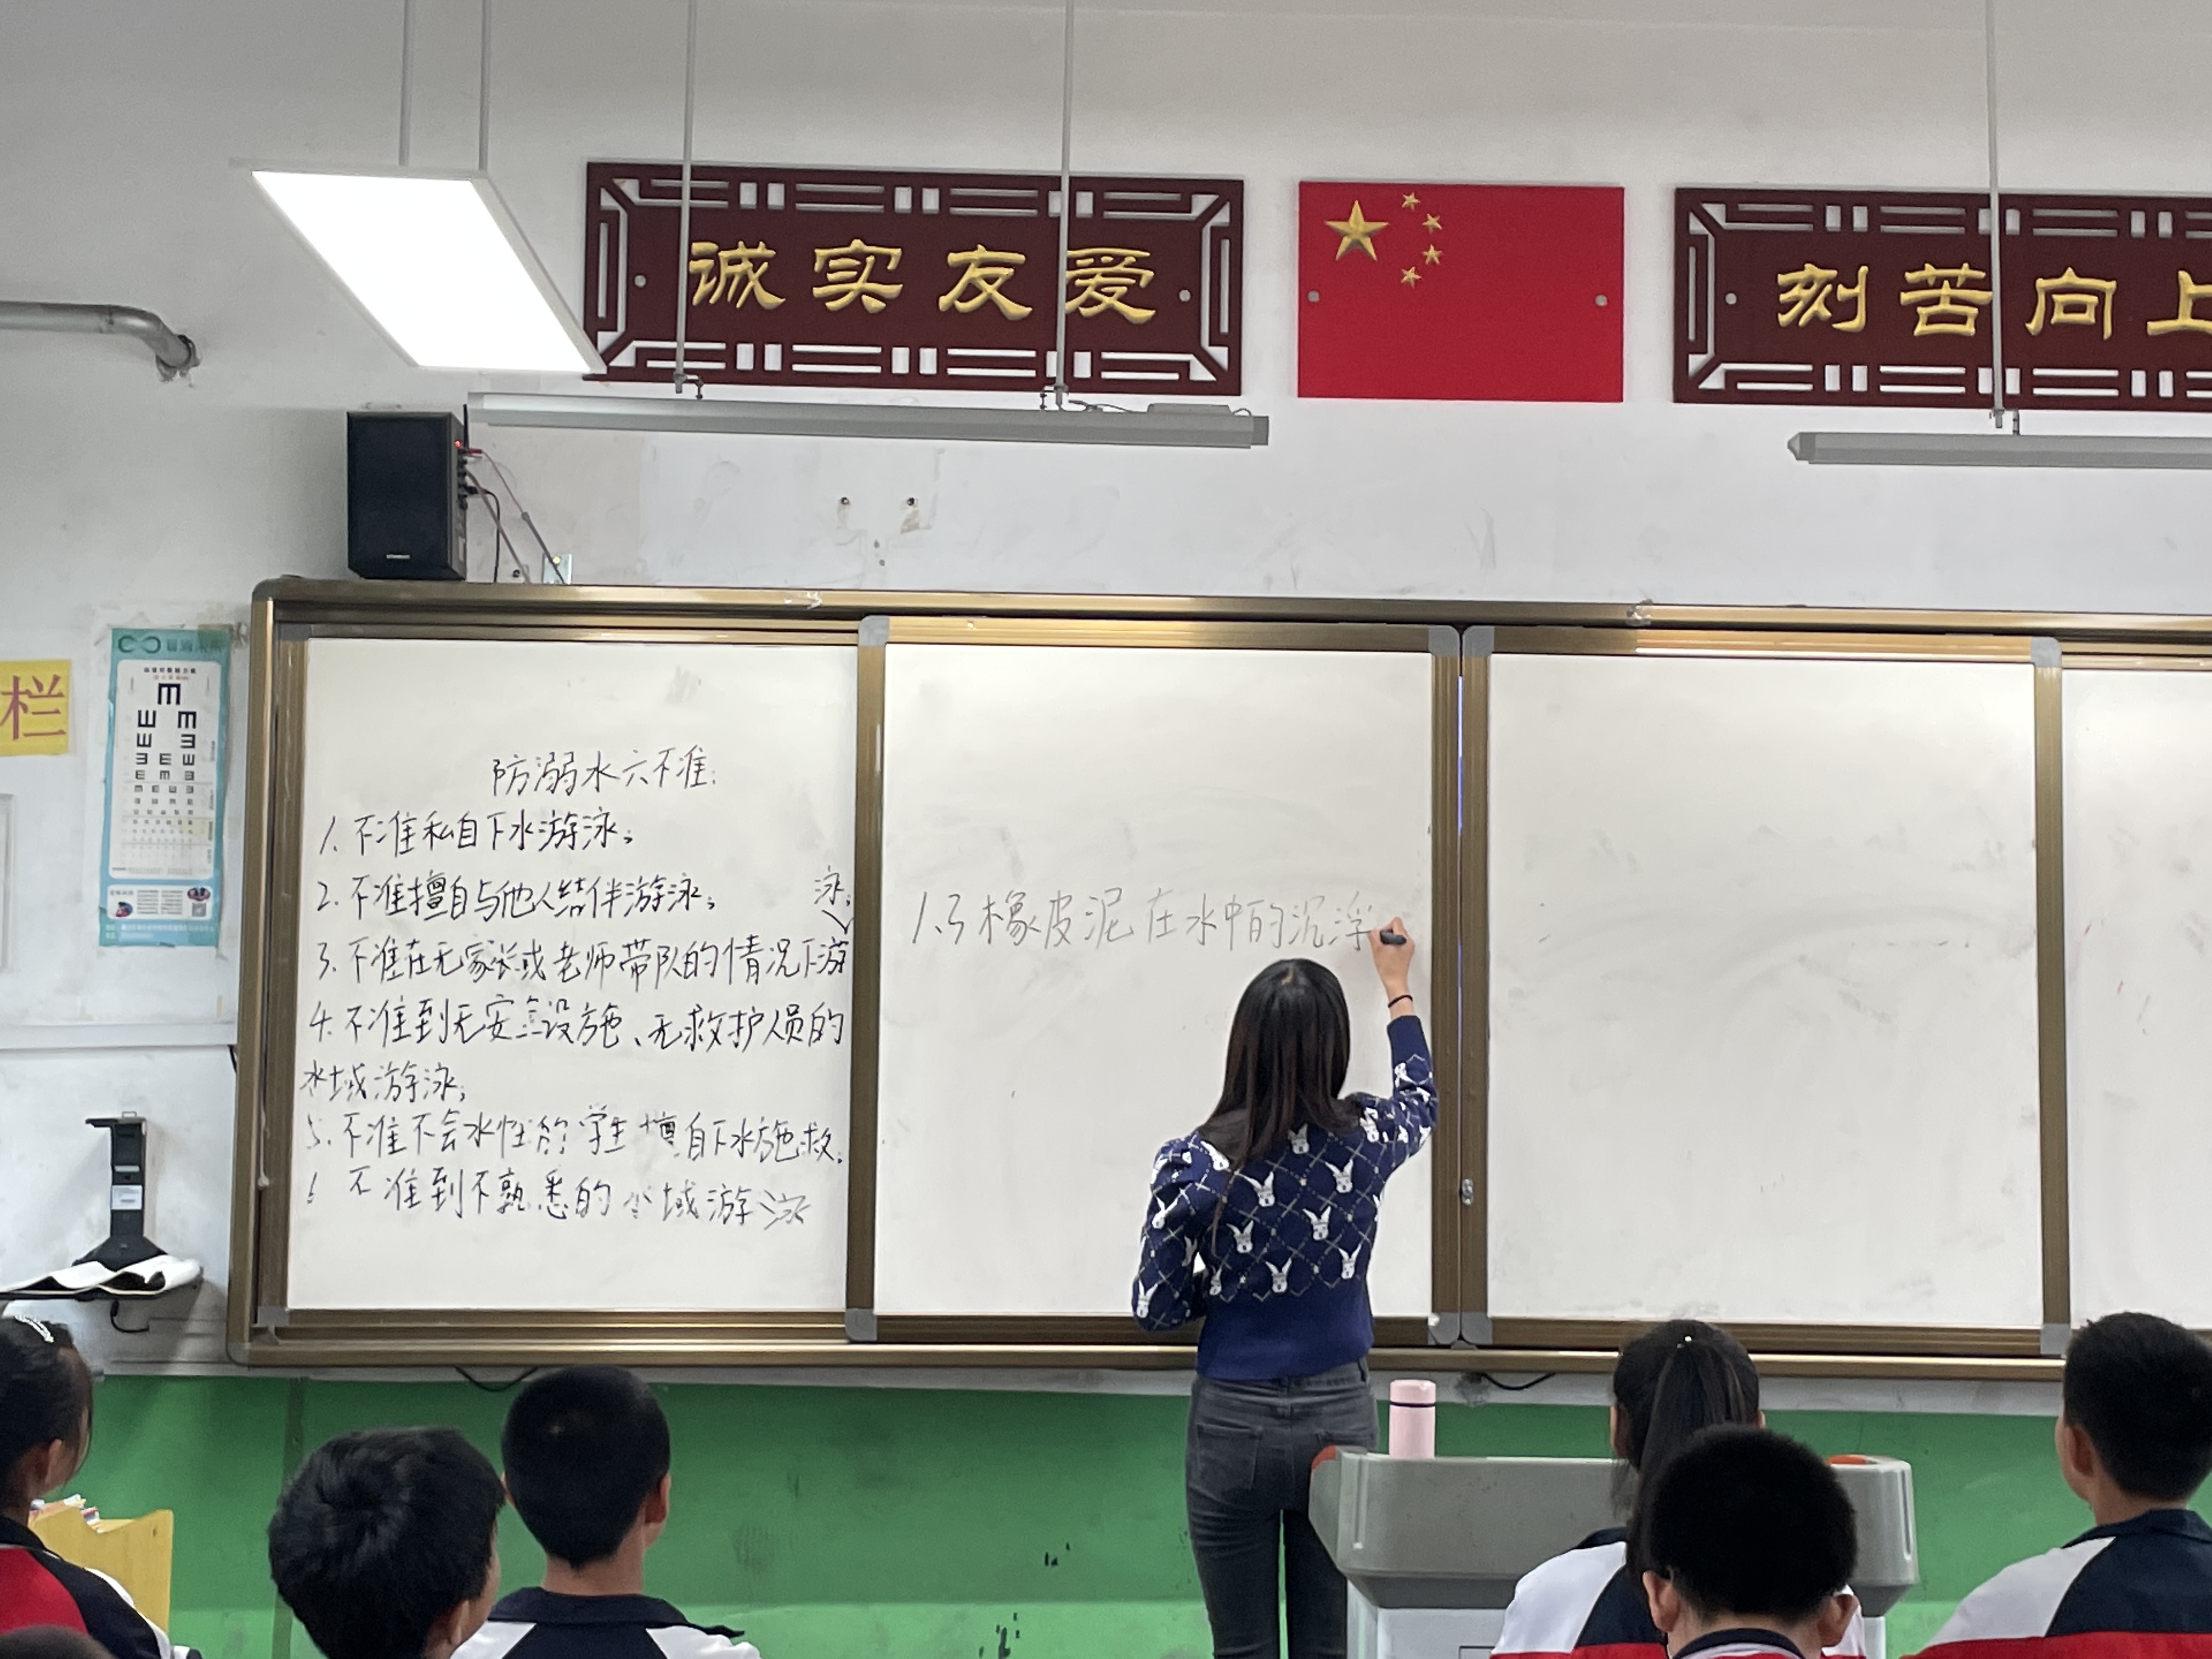 诚实友爱
刻苦向上
栏
防溺水六不准:
1. 不准私自下水游泳;
2. 不准擅自与他人结伴游泳;
3. 不准在无家长或老师带队的情况下游泳;
4. 不准到无安全设施、无救护人员的
水域游泳;
5. 不准不会水性的学生擅自下水施救;
6 不准到不熟悉的水域游泳
1.3橡皮泥在水中的沉浮